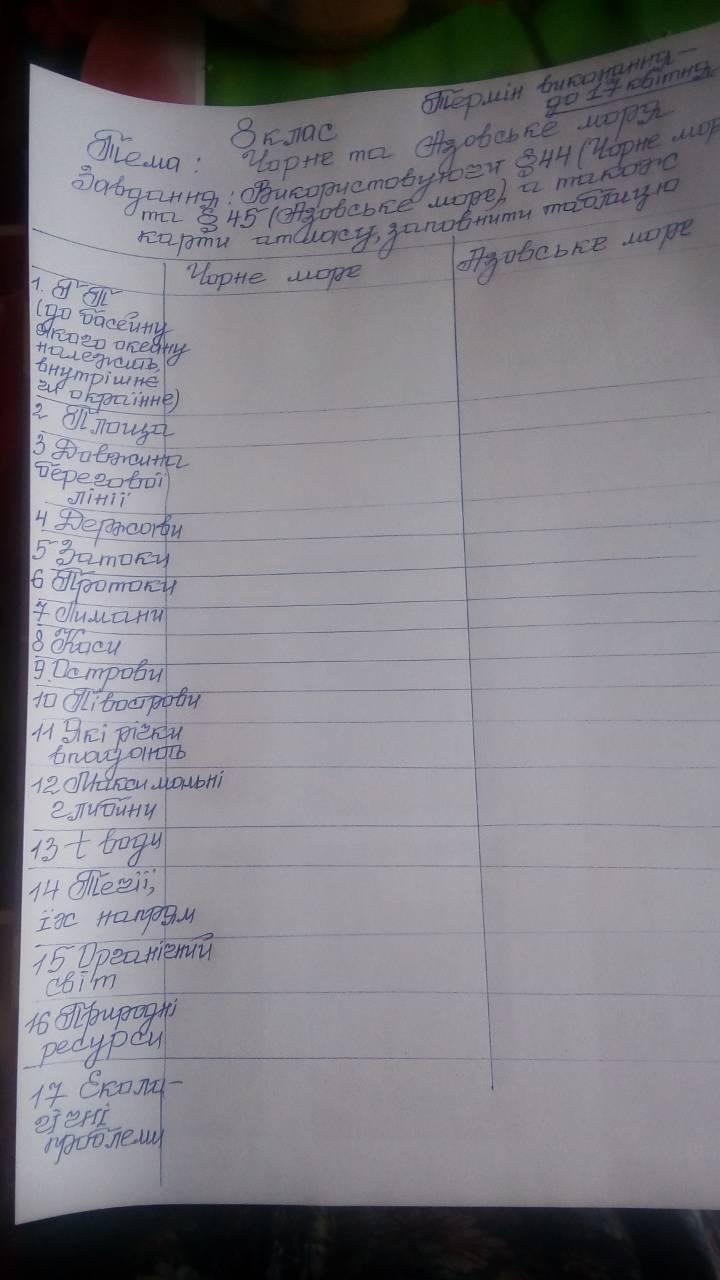 8 клас
Термін виконання -
до 17 квітня
Тема: Чорне та Азовське моря
Завдання: Використовуючи §44 (Чорне мор
та §45 (Азовське море), а також
карти атласу, заповнити таблицю
Чорне море
Азовське море
1. ГП
(до басейну
якого океану
належить,
внутрішнє
чи окраїнне)
2 Площа
3 Довжина
берегової
лінії
4 Держави
5 Затоки
6 Протоки
7 Лимани
8 Коси
9. Острови
10 Півострови
11 Які річки
впадають
12 Максимальні
глибини
13 t води
14 Течії,
їх напрям
15 Органічний
світ
16 Природні
ресурси
17 Еколо-
гічні
проблеми